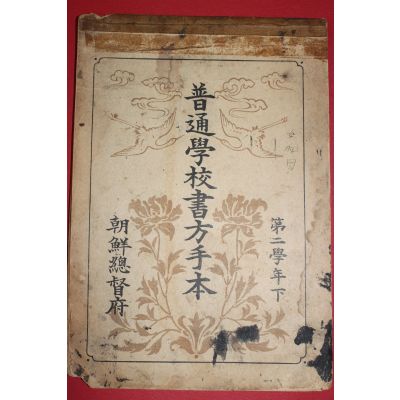 普通學校書方手本
第二學年下
朝鮮總督府